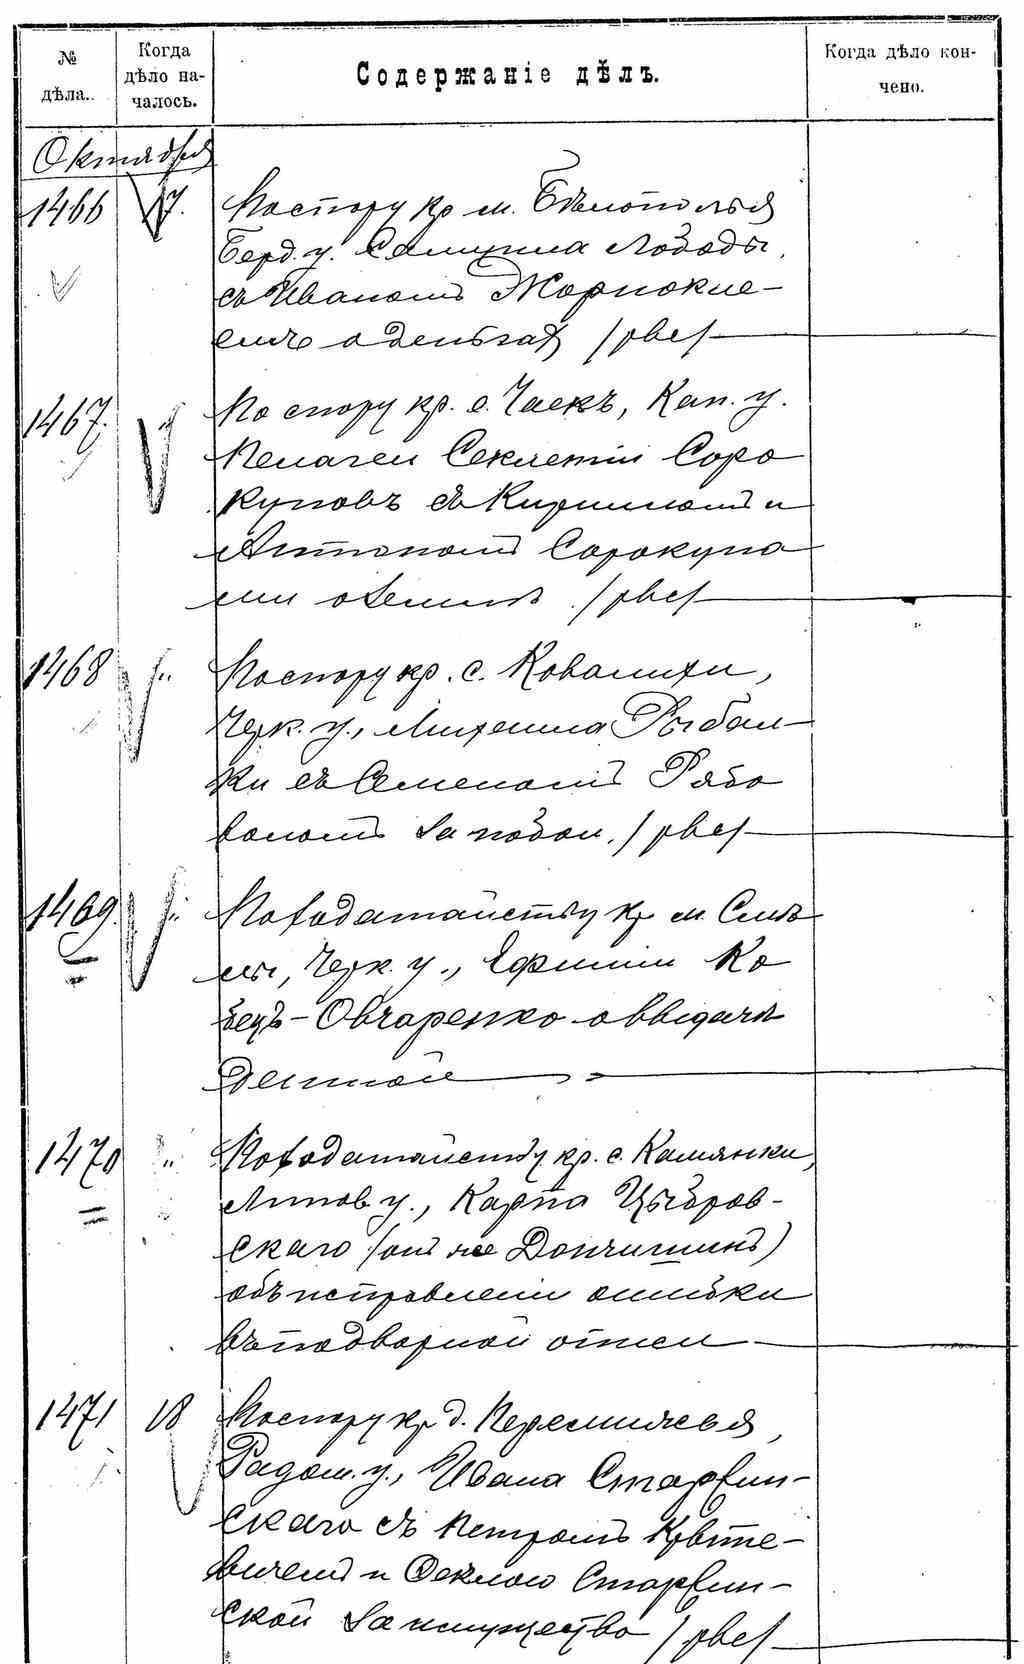 № дѣла.
Когда дѣло началось.
Содержаніе дѣлъ.
Когда дѣло кончено.
Октября
1466 17. По спору кр м. Бѣлополья
Берд. у. Самуила Лободы,
съ Иваномъ
емъ о деньгах /рве/
1467. " По спору кр. с. Чаекъ, Кан. у.
Пелагеи Секлетіи Соро
куповъ съ Кирилломъ и
Антономъ Сорокупа
ми о земли /рве/
1468 " По спору кр. с. Ковалихи,
Черк. у., Михаила Рыбал-
ки съ Семеномъ Рябо
воломъ за побои. /рве/
1469. " По ходатайству кр м. Смѣ
лы, Черк. у., Ефиміи Ко
бецъ-Овчаренко о выдачѣ
данной
1470 " По ходатайству кр. с. Камянки,
Липов у., Карпа Цыбров-
скаго (онъ же Дончишинъ)
объ исправленіи ошибки
въ подворной описи
1471 18 По спору кр д.
Радом. у., Ивана Старжин-
скаго съ Петромъ
вичемъ и Феклою Старжин-
ской за имущество /рве/